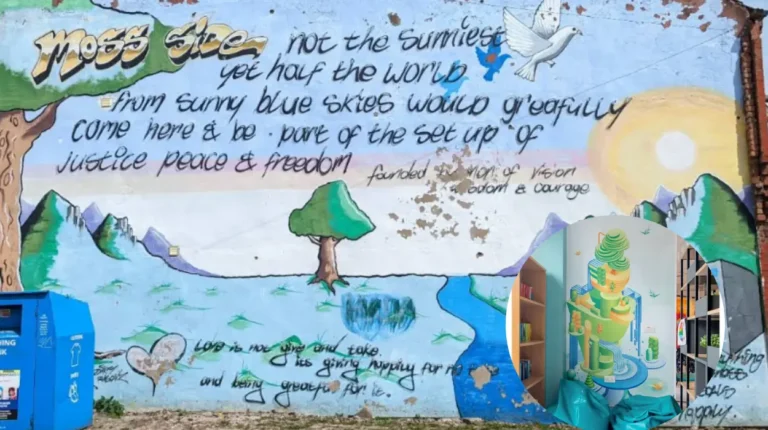 Moss Side
not the sunniest
yet half the world
from sunny blue skies would greatfully
come here & be . part of the set up of
justice peace & freedom
founded of vision
& courage
Love is not give and take
its giving happily for no
and being greatful for it.
happily.